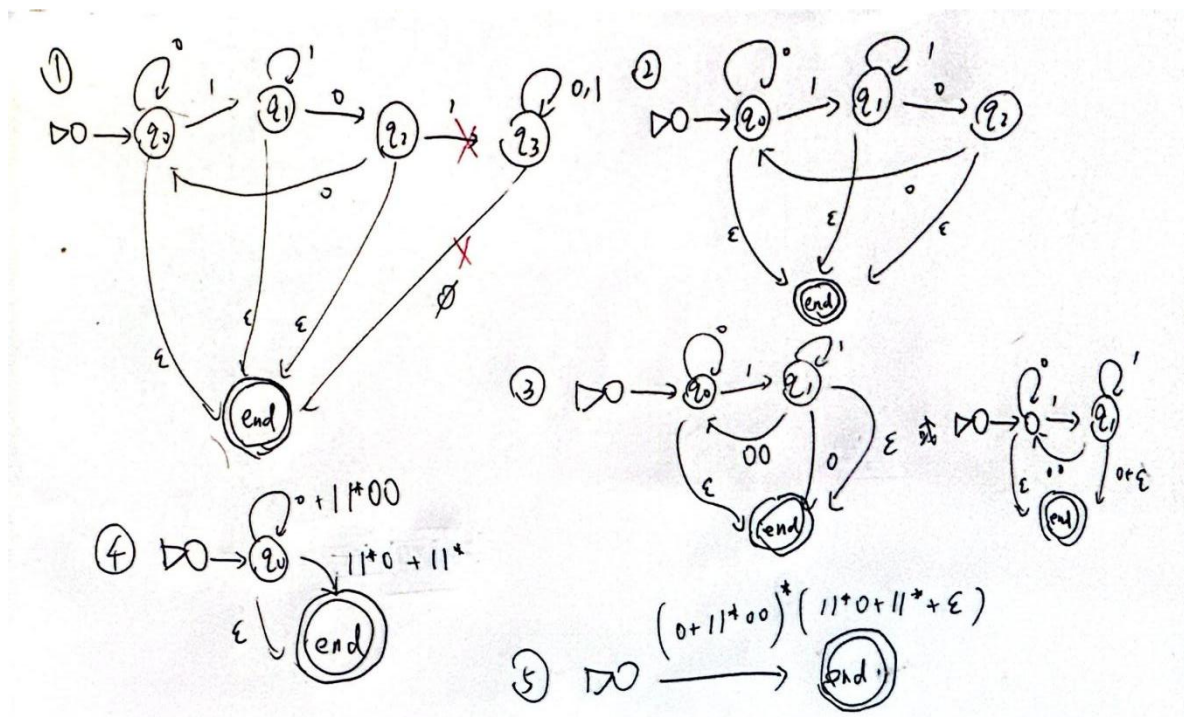 ①
0
1
0,1
q0
1
q1
0
q2
1
q3
0
ε
ε
ε
∅
end
②
0
1
q0
1
q1
0
q2
0
ε
ε
ε
end
③
0
1
q0
1
q1
00
ε
0
ε
end
或
0
1
1
q1
00
ε
0+ε
end
④
0+11*00
q0
11*0+11*
ε
end
⑤
(0+11*00)*(11*0+11*+ε)
end